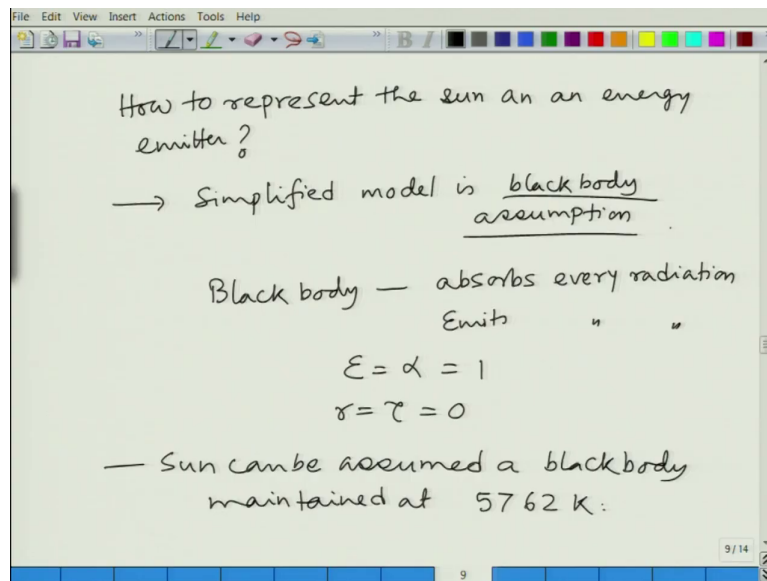 File Edit View Insert Actions Tools Help
B I
How to represent the sun an an energy
emitter?
→ Simplified model is black body
assumption
Black body — absorbs every radiation
Emits " "
ε = α = 1
r = τ = 0
— Sun can be assumed a blackbody
maintained at 5762 K.
9/14
9